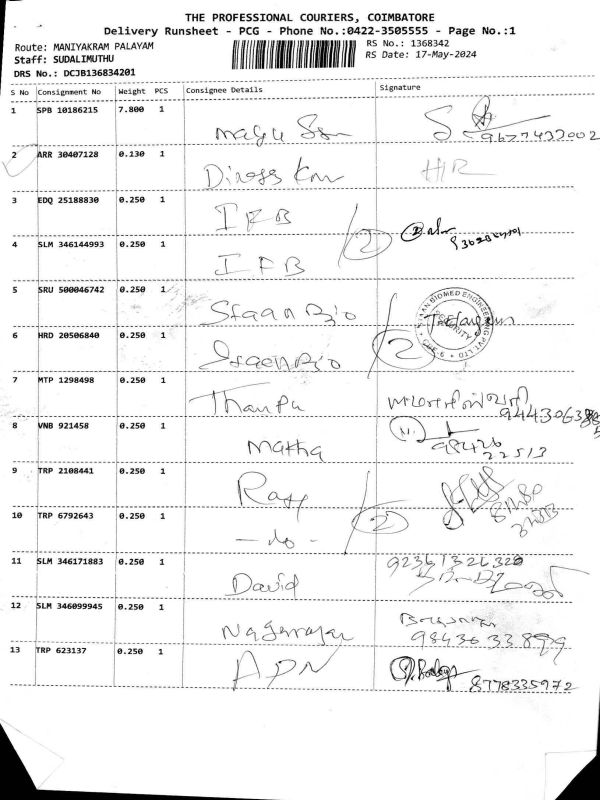 THE PROFESSIONAL COURIERS, COIMBATORE
Delivery Runsheet - PCG - Phone No.:0422-3505555 - Page No.:1
Route: MANIYAKRAM PALAYAM
RS No.: 1368342
Staff: SUDALIMUTHU
RS Date: 17-May-2024
DRS No.: DCJB136834201
S No Consignment No Weight PCS Consignee Details Signature
1 SPB 10186215 7.800 1
2 ARR 30407128 0.130 1
3 EDQ 25188830 0.250 1 IFB
2
4 SLM 346144993 0.250 1 IFB
5 SRU 500046742 0.250 1 Sfaan Bio
SFAAN BIOMED ENGINEERING PVT LTD
SECURITY
CBE-6
2
6 HRD 20506840 0.250 1 Sfaan Bio
7 MTP 1298498 0.250 1
8 VNB 921458 0.250 1 Matha
98426
22513
9 TRP 2108441 0.250 1
2
10 TRP 6792643 0.250 1 - do -
11 SLM 346171883 0.250 1 David
12 SLM 346099945 0.250 1 Nagarajan
13 TRP 623137 0.250 1 APN
8778335972